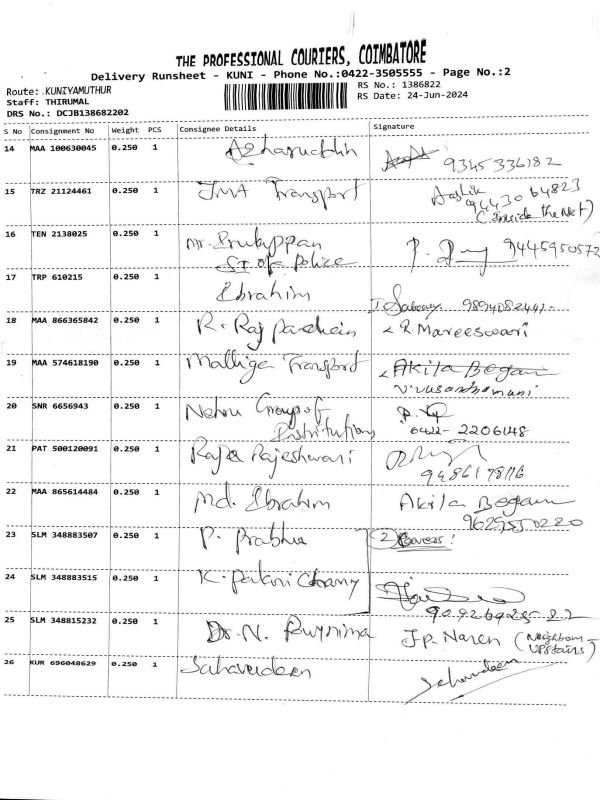 THE PROFESSIONAL COURIERS, COIMBATORE
Delivery Runsheet - KUNI - Phone No.:0422-3505555 - Page No.:2
Route: KUNIYAMUTHUR
Staff: THIRUMAL
DRS No.: DCJB138682202
RS No.: 1386822
RS Date: 24-Jun-2024
S No Consignment No Weight PCS Consignee Details Signature
14 MAA 100630045 0.250 1 Azharuddin 9345336182
15 TRZ 21124461 0.250 1 JMA Transport Aashik
94430 64823
(inside the Net)
16 TEN 2138025 0.250 1 Mr. 9445950572
SI of police
17 TRP 610215 0.250 1 Ebrahim
9894082441-
18 MAA 866365842 0.250 1 R. Raj R. Mareeswari
19 MAA 574618190 0.250 1 Malliga Transport Akila Begam
20 SNR 6656943 0.250 1 Nehru Group of
Institutions 0422- 2206148
21 PAT 500120091 0.250 1 Raja Rajeshwari
22 MAA 865614484 0.250 1 Md. Ebrahim Akila Begam
9629550220
23 SLM 348883507 0.250 1 P. Prabhu (2) Covers!
24 SLM 348883515 0.250 1 K. Palani
25 SLM 348815232 0.250 1 Dr. N. J.P. Naren (Neighbour-
Upstairs)
26 KUR 696048629 0.250 1 Sahavudeen